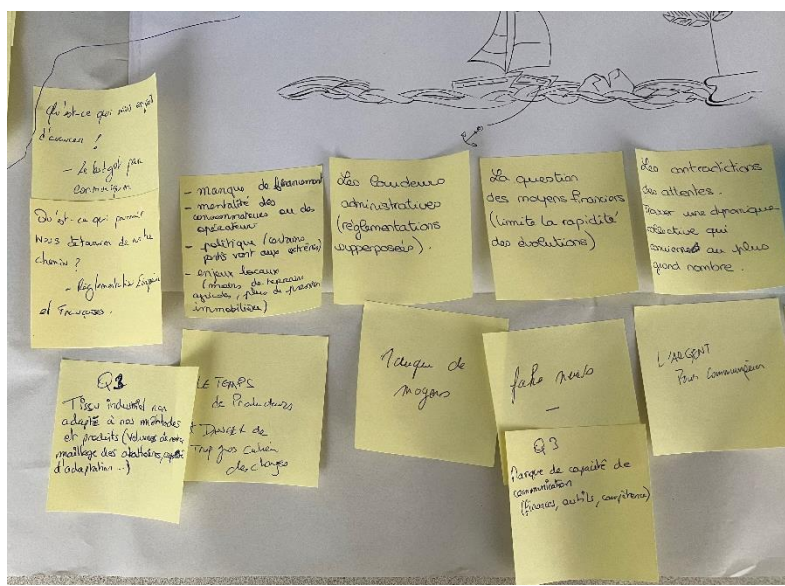 Qu'est-ce qui nous empêche
d'avancer !
- Le budget par
communiquer
Qu'est-ce qui pourrait
nous détourner de notre
chemin ?
- Réglementation
et Françaises.
- manque de financement
- mentalité des
consommateurs ou des
opérateurs
- politique (certains
partis vont aux extrêmes)
- enjeux locaux
(moins de terrain
agricole, plus de pression
immobilière)
Les lourdeurs
administratives
(réglementations
superposées).
La question
des moyens financiers
(limite la rapidité
des évolutions)
Les contradictions
des attentes.
Trouver une dynamique
collective qui
convienne au plus
grand nombre.
Q3
Tissu industriel non
adapté à nos méthodes
et produits (Volumes
maillage des abattoirs, capacité
d'adaptation ...)
LE TEMPS
de Producteurs
Danger de
Trop gros Cahier
des charges
Manque de
moyens
fake news
-
Q3
Manque de capacité de
communication
(finances, outils, compétence)
L'ARGENT
Pour Communiquer